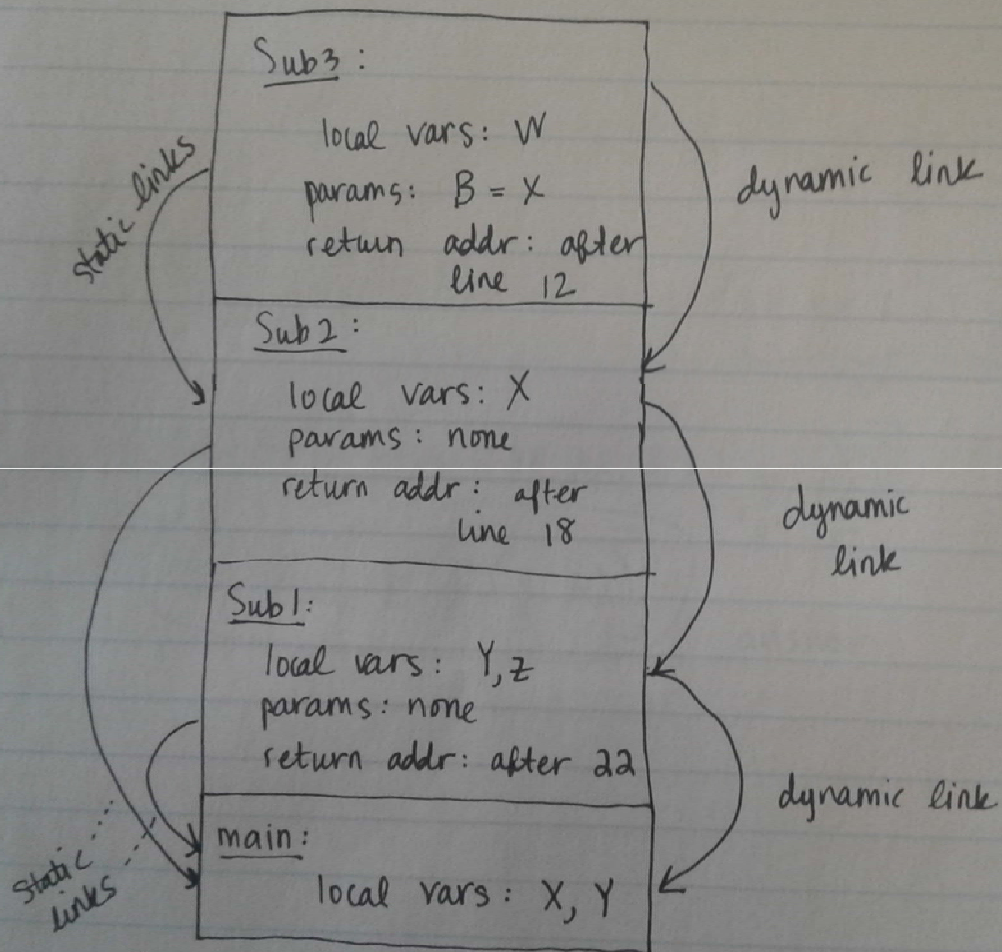 Sub3:
local vars: W
params: B = X
return addr: after
line 12
static links
dynamic link
Sub2:
local vars: X
params: none
return addr: after
line 18
dynamic
link
Sub1:
local vars: Y, Z
params: none
return addr: after 22
dynamic link
main:
local vars: X, Y
static
links